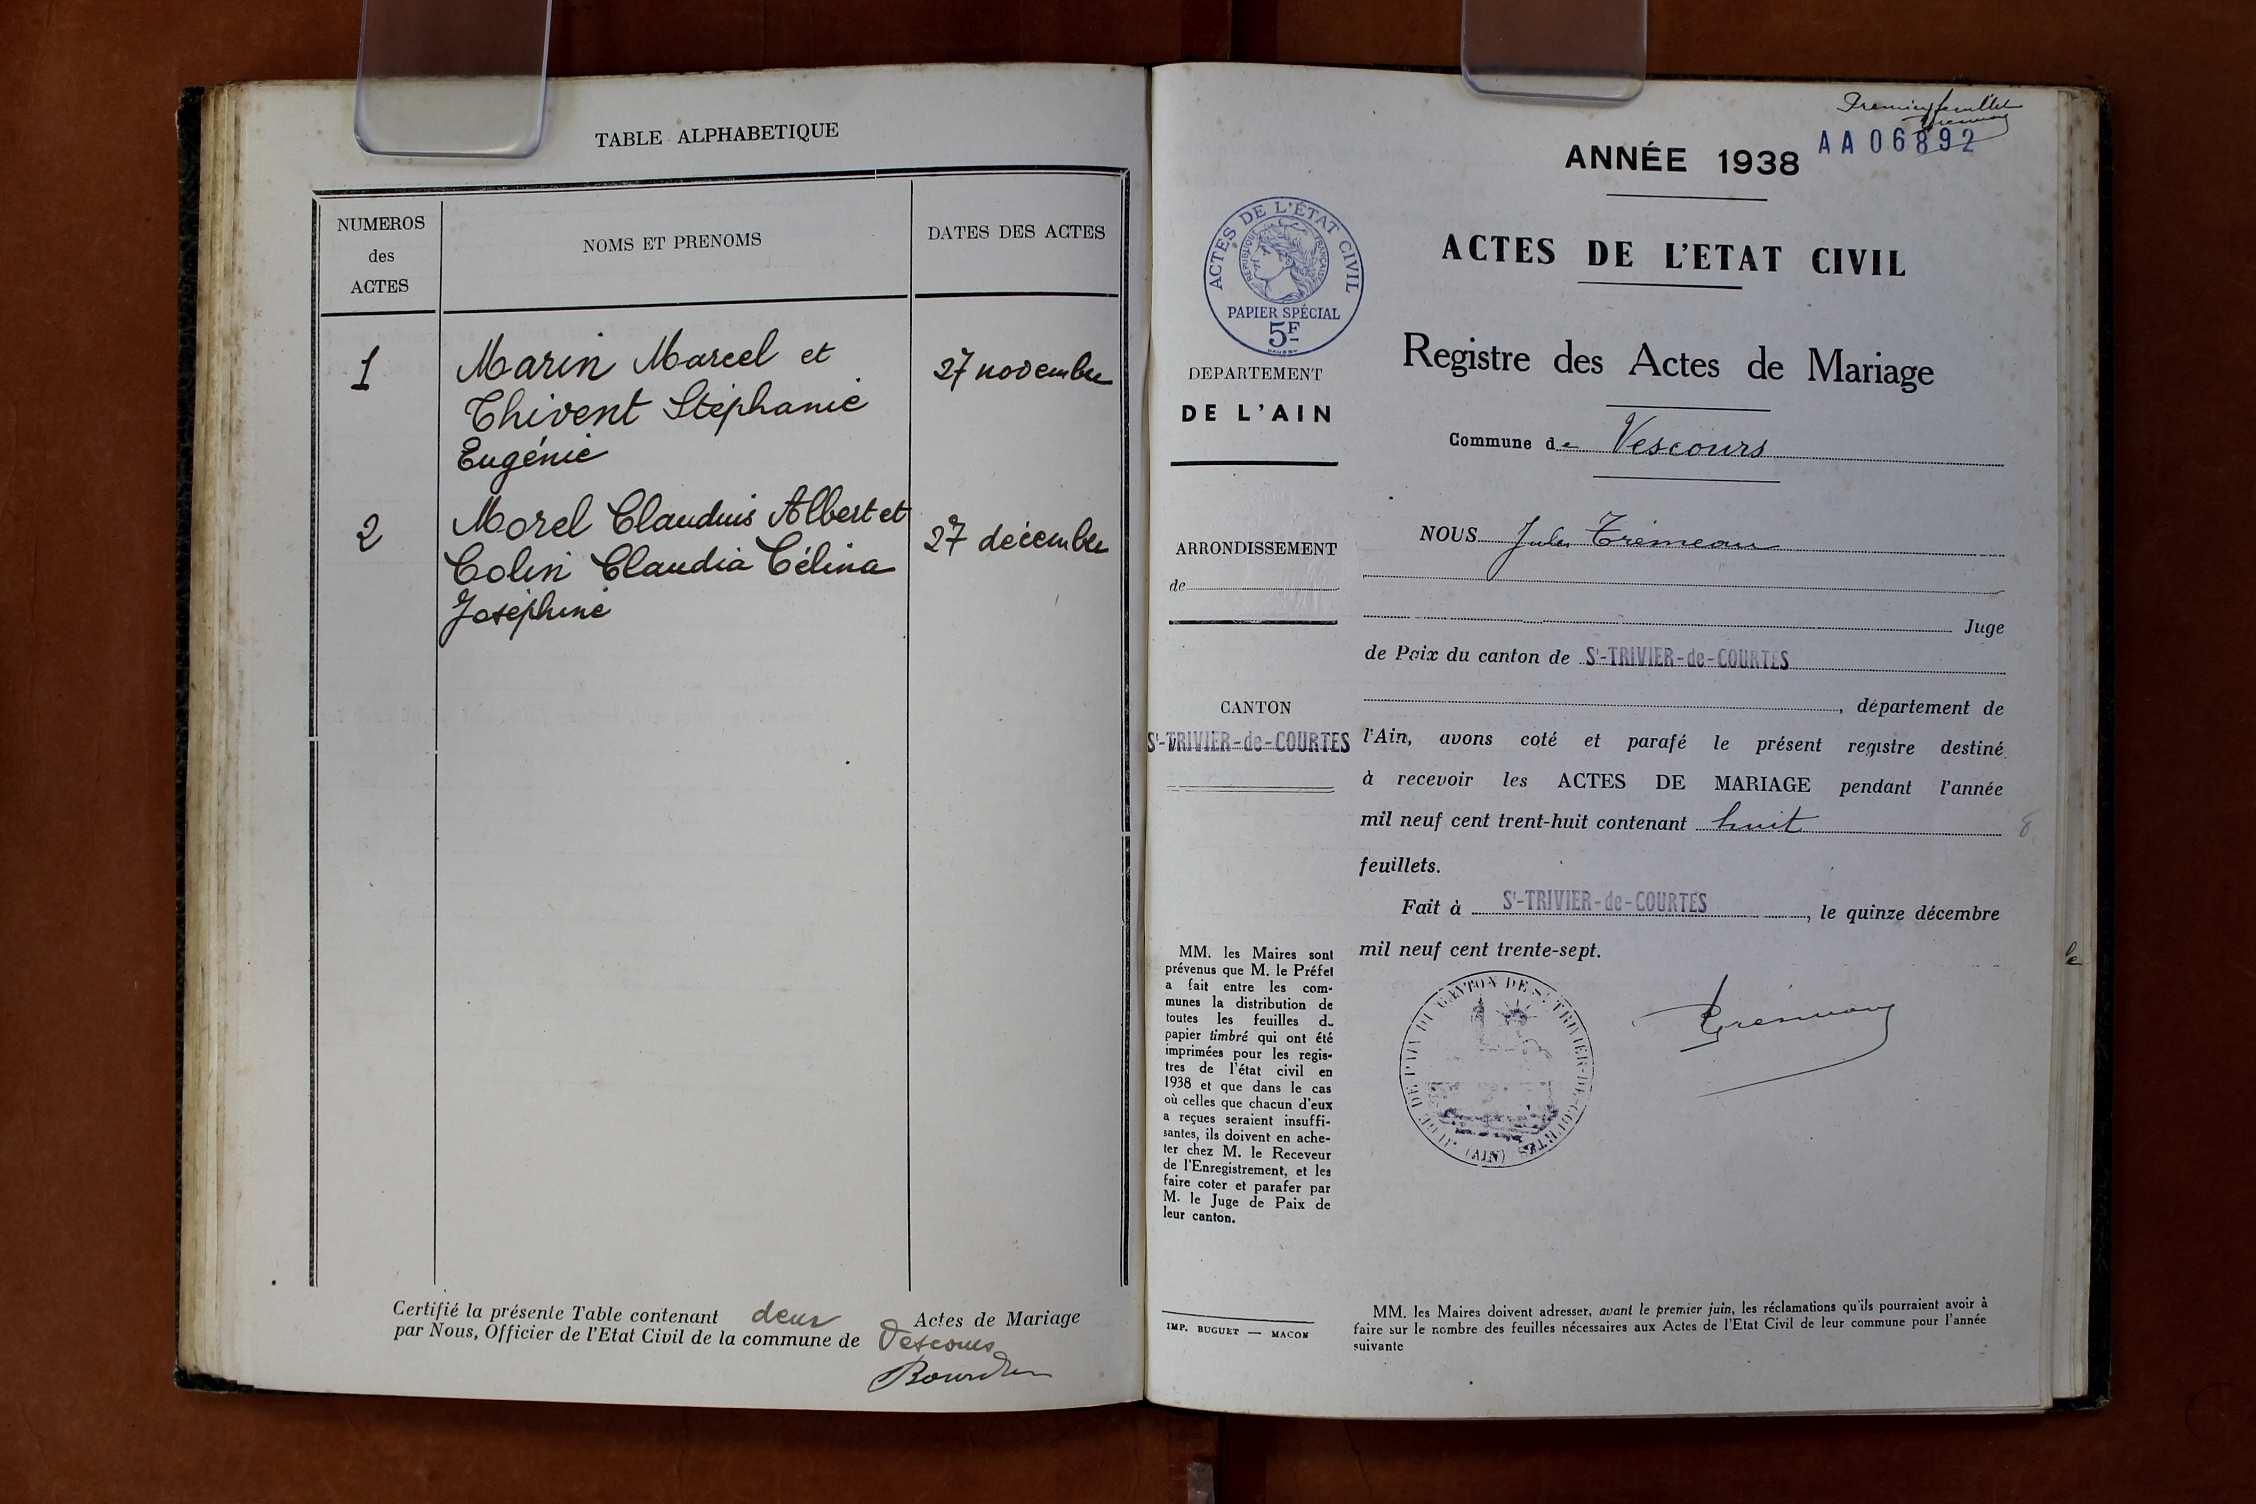 TABLE ALPHABETIQUE
NUMEROS
des
ACTES
NOMS ET PRENOMS
DATES DES ACTES
1
Marin Marcel et
Thivent Stéphanie
Eugénie
27 novembre
2
Morel Claudius Albert et
Colin Claudia Célina
Joséphine
27 décembre
Certifié la présente Table contenant deux Actes de Mariage
par Nous, Officier de l'Etat Civil de la commune de Vescours
Premier feuillet
AA06892
ANNÉE 1938
ACTES DE L'ETAT CIVIL
ACTES DE L'ÉTAT CIVIL
RÉPUBLIQUE FRANÇAISE
PAPIER SPÉCIAL
5F
DEPARTEMENT
DE L'AIN
ARRONDISSEMENT
de
CANTON
St-TRIVIER-de-COURTES
MM. les Maires sont
prévenus que M. le Préfet
a fait entre les com-
munes la distribution de
toutes les feuilles de
papier timbré qui ont été
imprimées pour les regis-
tres de l'état civil en
1938 et que dans le cas
où celles que chacun d'eux
a reçues seraient insuffi-
santes, ils doivent en ache-
ter chez M. le Receveur
de l'Enregistrement, et les
faire coter et parafer par
M. le Juge de Paix de
leur canton.
IMP. BUGUET — MACON
Registre des Actes de Mariage
Commune de Vescours
NOUS Jules Trémeau
Juge
de Paix du canton de St-TRIVIER-de-COURTES
, département de
l'Ain, avons coté et parafé le présent registre destiné
à recevoir les ACTES DE MARIAGE pendant l'année
mil neuf cent trent-huit contenant huit 8
feuillets.
Fait à St-TRIVIER-de-COURTES, le quinze décembre
mil neuf cent trente-sept.
JUGE DE PAIX DU CANTON DE ST TRIVIER-DE-COURTES (AIN)
MM. les Maires doivent adresser, avant le premier juin, les réclamations qu'ils pourraient avoir à
faire sur le nombre des feuilles nécessaires aux Actes de l'Etat Civil de leur commune pour l'année
suivante